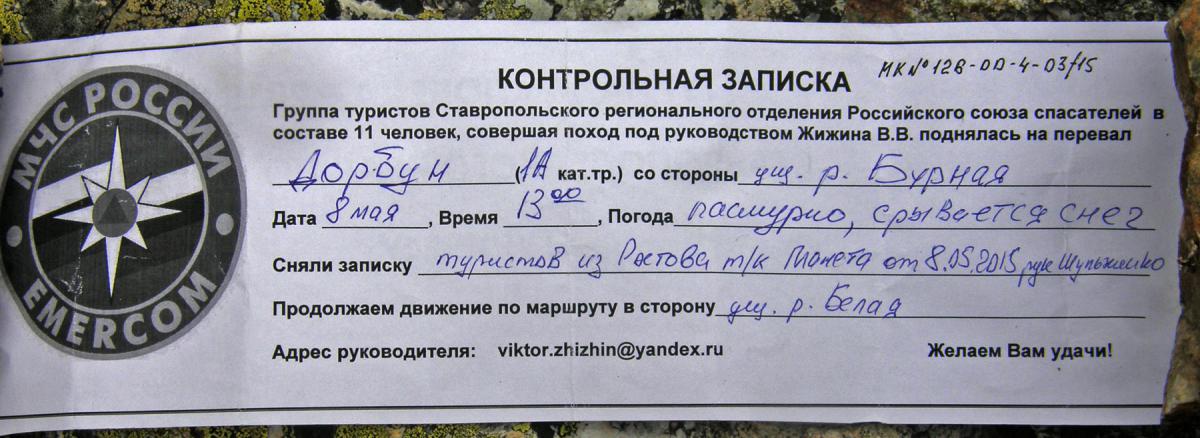 МЧС РОССИИ
EMERCOM
МК№12В-00-4-03/15
КОНТРОЛЬНАЯ ЗАПИСКА
Группа туристов Ставропольского регионального отделения Российского союза спасателей в
составе 11 человек, совершая поход под руководством Жижина В.В. поднялась на перевал
Дорбун (1А кат.тр.) со стороны ущ. р. Бурная
Дата 8 мая, Время 13 00, Погода пасмурно, срывается снег
Сняли записку туристов из Ростова т/к Планета от 8.05.2015, рук
Продолжаем движение по маршруту в сторону ущ. р. Белая
Адрес руководителя: viktor.zhizhin@yandex.ru Желаем Вам удачи!